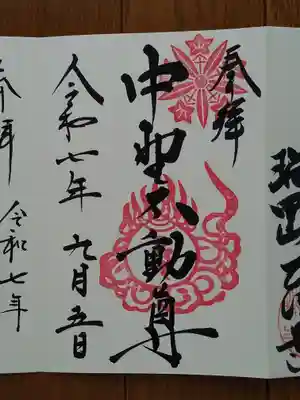 奉拝
中野不動尊
令和七年 九月五日
奉拝
令和七年